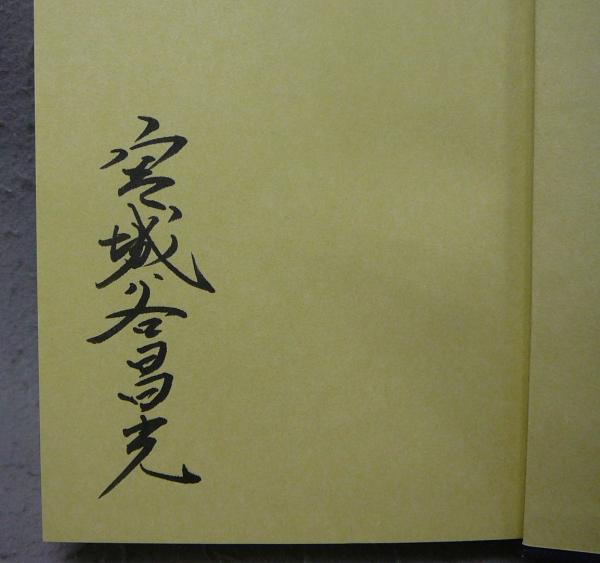 宮城谷昌光